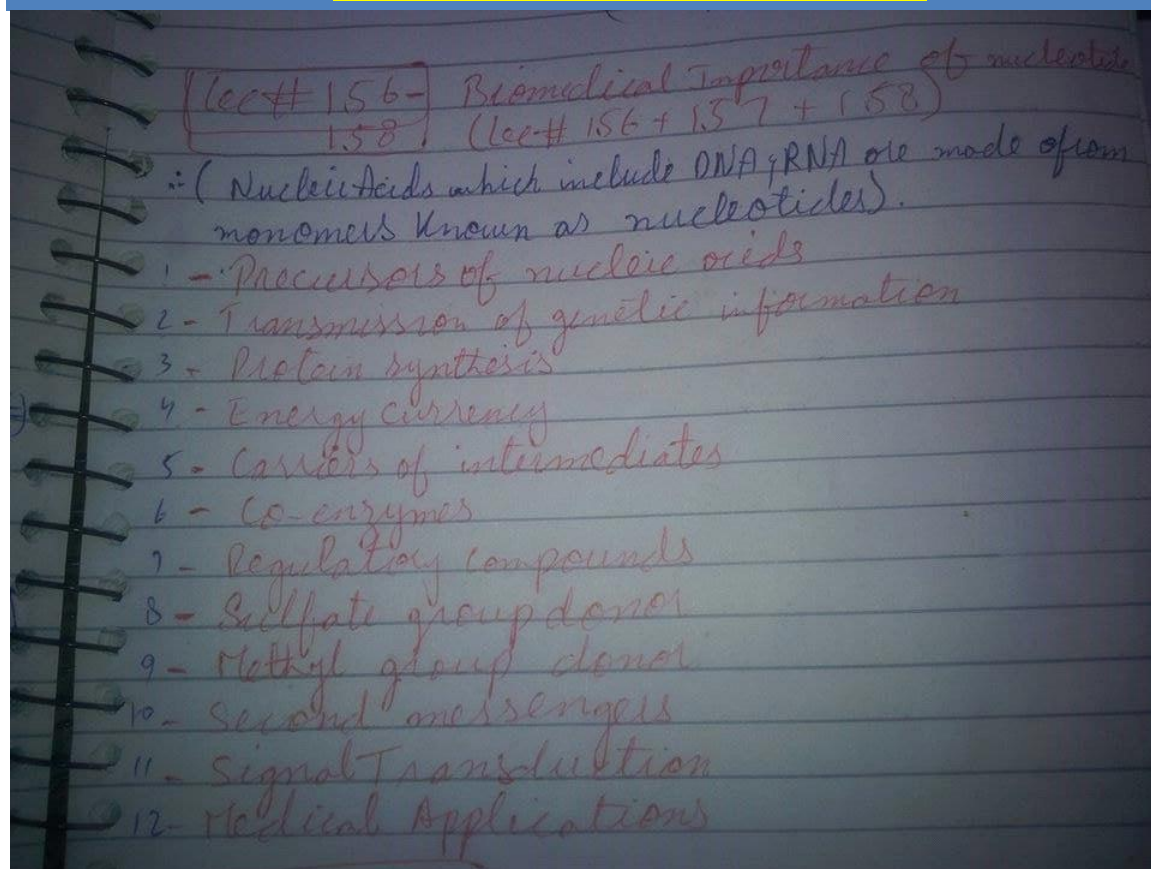 Lec# 156- Biomedical Importance of nucleotide
158 (Lec-# 156 + 157 + 158)
∴ ( Nucleic Acids which include DNA, RNA are made from
monomers known as nucleotides).
1 - Precursors of nucleic acids
2 - Transmission of genetic information
3 - Protein synthesis
4 - Energy currency
5 - Carriers of intermediates
6 - Co-enzymes
7 - Regulatory compounds
8 - Sulfate group donor
9 - Methyl group donor
10 - Second messengers
11 - Signal Transduction
12 - Medical Applications